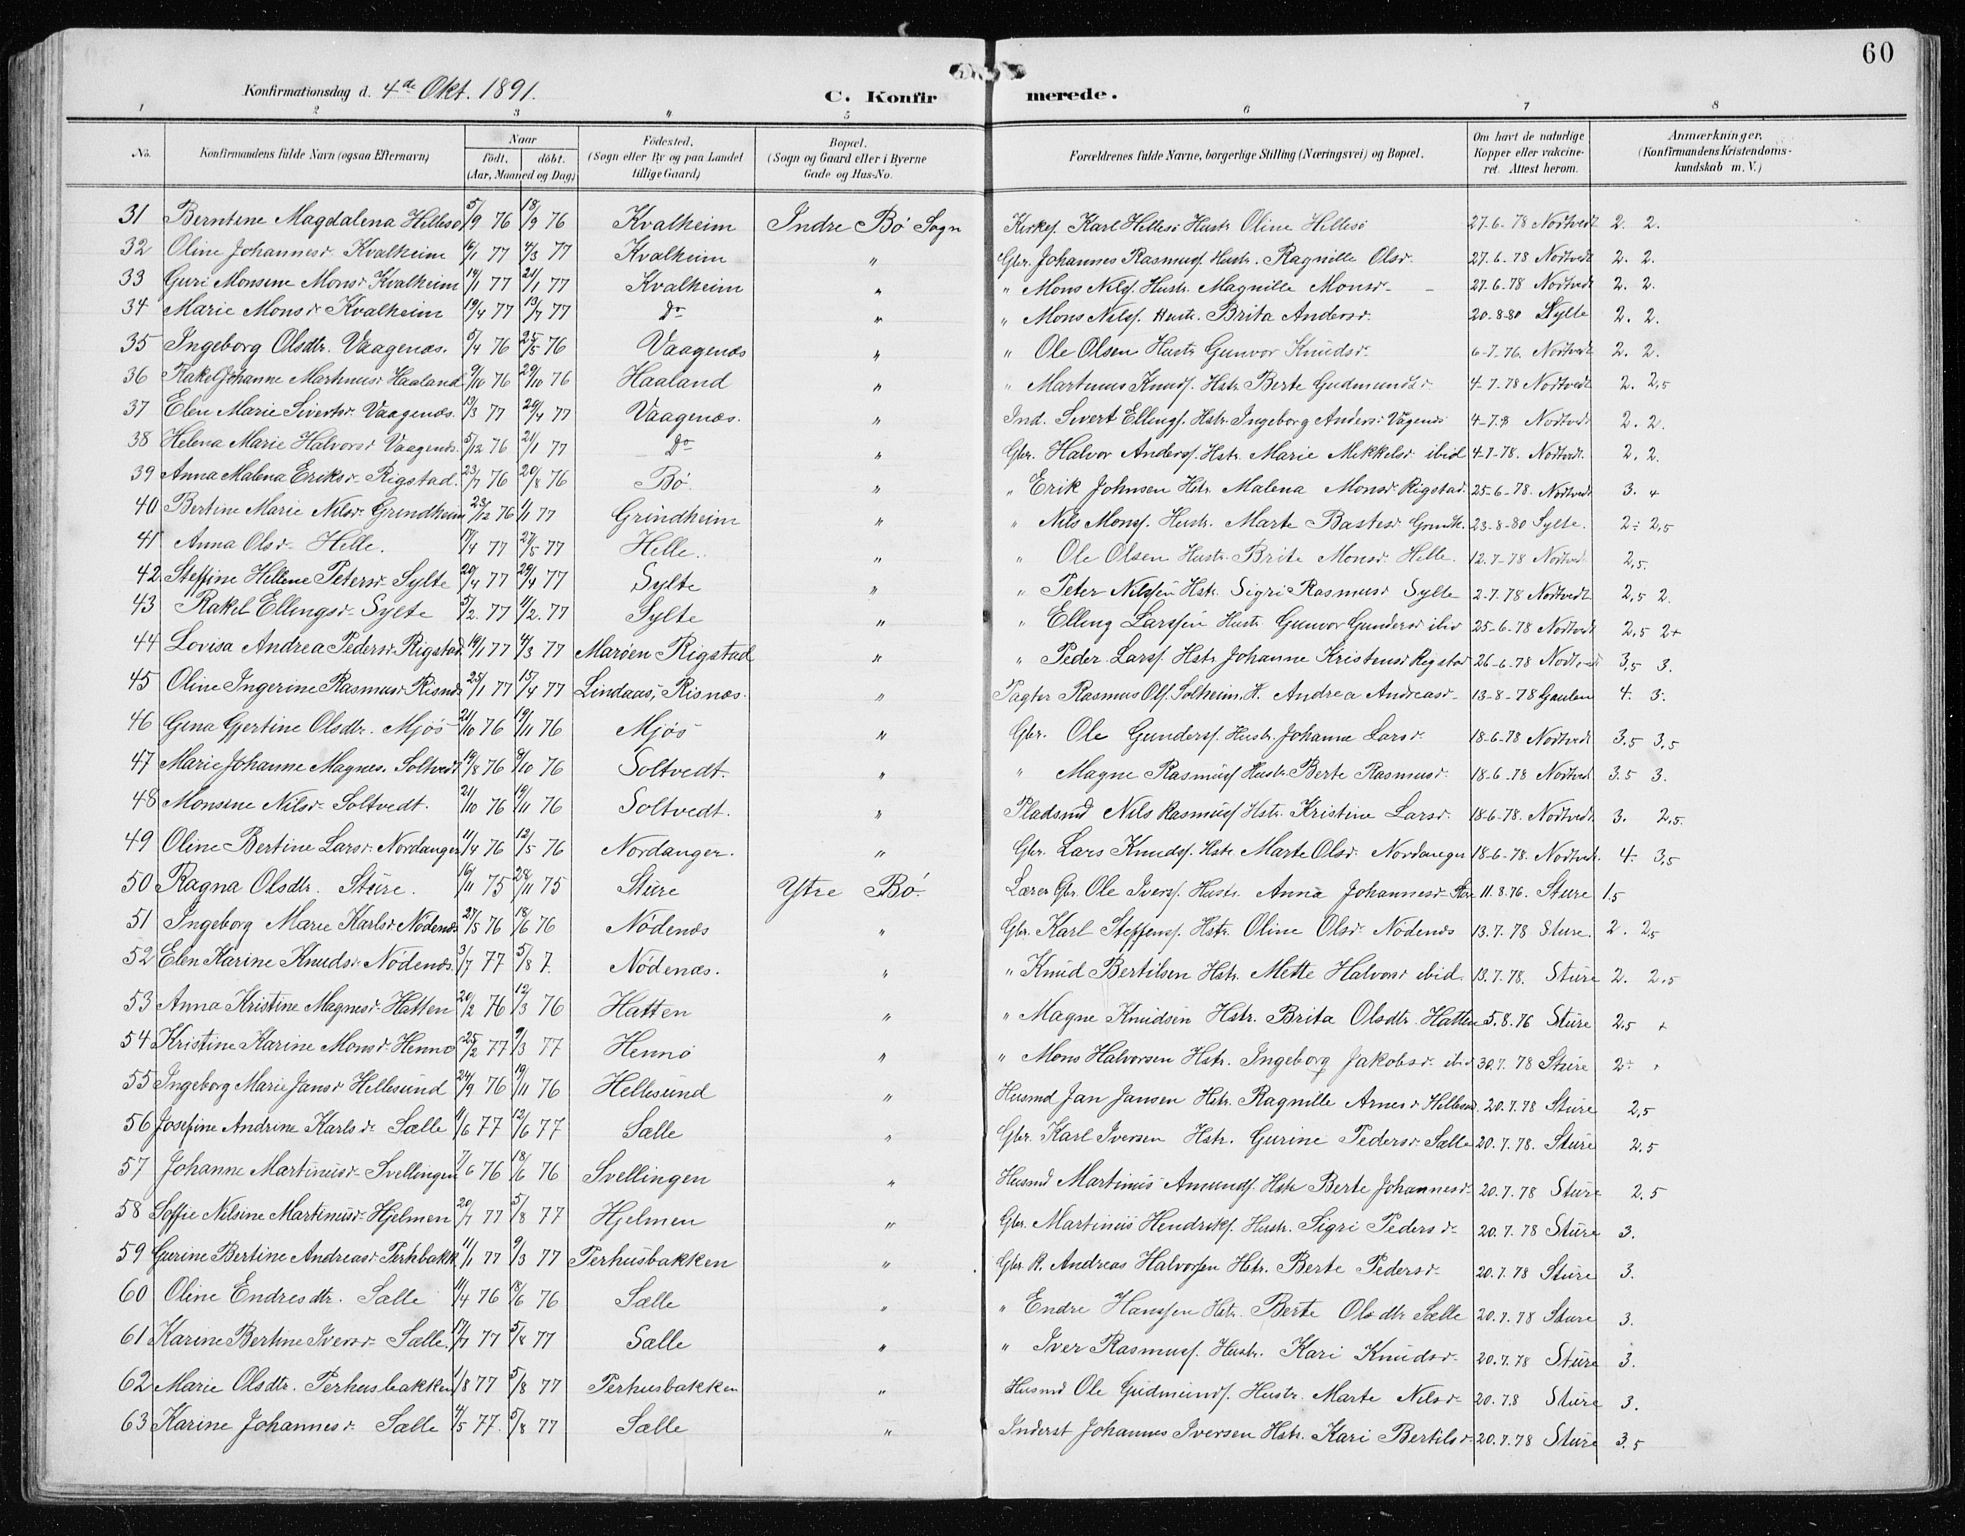 60
Konfirmationsdag d. 4de Okt. 1891.
C. Konfirmerede.
1 2 3 " 5 6 7 8
No. Konfirmandens fulde Navn (ogsaa Efternavn) Naar födt. döbt. (Aar, Maaned og Dag) Födested. (Sogn eller By og paa Landet tillige Gaard) Bopæl. (Sogn og Gaard eller i Byerne Gade og Hus-No. Forældrenes fulde Navne, borgerlige Stilling (Næringsvei) og Bopæl. Om havt de naturlige Kopper eller vakcineret. Attest herom. Anmærkninger. (Konfirmandens Kristendomskundskab m. V.)
31 Berntine Magdalena Hillesö 5/9 76 18/9 76 Kvalheim Indre Bø Sogn Kirkes. Karl Hillesö Hustr Oline Hillesö 27-6-78 Nodtvedt 2. 2.
32 Oline Johannesdr Kvalheim 16/1 77 4/3 77 Kvalheim " Gbr. Johannes Rasmuss. Hustr. Ragnille Olsdr. 27.6.78 Nodtvedt 2. 2.
33 Guri Monsine Monsdr Kvalheim 14/1 77 21/1 77 Kvalheim " " Mons Nilss. Hustr. Magnille Monsdr- 27-6-78 Nodtvedt 2. 2.
34 Marie Monsdr Kvalheim 19/4 77 13/7 77 Do " " Mons Nilss. Hustr. Brita Andersdr. 20.8-80 Sylte 2. 2.
35 Ingeborg Olsdtr. Vaagenæs. 5/4 76 25/5 76 Vaagenæs " " Ole Olsen Hustr Gunvor Knudsdr. 6-7.76. Nodtvedt 2. 2.
36 Rakel Johanne Martinusdr Haaland 9/10 76 29/10 76 Haaland " " Martinus Knuds. Hstr. Berte Gudmundsdr 4-7-78 Nodtvedt 2. 2,5
37 Elen Marie Sivertsdr. Vaagenæs. 13/3 77 29/4 77 Vaagenæs. " Ind. Sivert Ellings. Hstr. Ingeborg Andersdr Vågenæs 4-7.78 Nodtvedt 2. 2.
38 Helena Marie Halvorsdr Vaagenæs. 5/12 76 21/1 77 Do " Gbr. Halvor Anderss. Hstr. Marie Mikkelsdr ibid 4-7-78. Nodtvedt. 2. 2.
39 Anna Malena Eriksdr. Rigstad. 23/7 76 20/8 76 Bø " " Erik Johnsen Hstr. Malena Monsdr Rigstad. 25-6-78. Nodtvedt 3. +
40 Bertine Marie Nilsdr Grindheim 23/12 76 1/1 77 Grindheim " " Nils Monss. Hustr. Marte Bastesdr Grindh. 23-8-80 Sylte. 2÷ 2,5
41 Anna Olsdr Helle. 17/4 77 27/5 77 Helle. " " Ole Olsen Hustr Brite Monsdr Helle. 12.7-78 Nodtvedt 2,5.
42 Steffine Hellene Petersdr Sylte 20/4 77 29/4 77 Sylte " " Peter Nilssen Hstr. Sigri Rasmusdr Sylte 2-7.78 Nodtvedt 2,5 2.
43 Rakel Ellingsdr Sylte 5/2. 77 11/2. 77 Sylte " " Elling Larssen Hustr. Gunvor Gundersdr ibid 25-6-78 Nodtvedt 2,5 2+
44 Lovisa Andrea Pedersdr Rigstad 19/1 77 4/3 77 Maröen Rigstad " " Peder Larss. Hstr Johanne Kristensdr Rigstad 26-6-78 Nodtvedt 3,5 3.
45 Oline Ingerine Rasmusdr Risnæs 25/1 77 15/4 77 Lindaas, Risnæs. " Pagter Rasmus Ols. Solheim. H. Andrea Andreasdr 13-8-78 Gaulen 4. 3.
46 Gena Gjertine Olsdtr. Mjös 21/10 76 19/11 76 Mjös " Gbr. Ole Gunders. Hustr. Johanne Larsdr. 18-6-78 Nodtvedt 3,5 3,5
47 Marie Johanne Magnes. Soltvedt 19/8 76 8/10 76 Soltvedt. " " Magne Rasmuss Hustr Berte Rasmusdr. 18-6-78 Nodtvedt 3.5 3.
48 Monsine Nilsdr Soltvedt. 21/10 76 19/11 76 Soltvedt. " Pladsmd Nils Rasmuss Hstr. Kristine Larsdr. 18-6-78. Nodtvedt 3. 2,5.
49 Oline Bertine Larsdr. Nordanger 11/4 76 12/5 76 Nordanger. " Gbr. Lars Knuds. Hstr. Marte Olsdr. Nordanger 18-6-78. Nodtvedt. 4÷ 3,5
50 Ragna Olsdtr. Sture. 16/11 75 28/11 75 Sture Ytre Bø. Lærer Gbr. Ole Ivers. Hustr. Anna Johannesdr Sture 11.8.76. Sture 1,5
51 Ingeborg Marie Karlsdr Nödenæs 27/5 76 18/6 76 Nödenæs " Gbr. Karl Steffens. Hstr. Oline Olsdr. Nödenæs 13.7.78 Sture. 2. 2,5
52 Elen Karine Knudsdr Nödenæs. 3/7 77 5/8 7. Nödenæs. " " Knud Bertilsen Hstr. Mette Halvorsdr ibid. 13.7.78. Sture 2. 2,5
53 Anna Kristine Magnesdr Hatten 20/2 76 12/3 76 Hatten " " Magne Knudsen Hstr. Brita Olsdtr. Hatten 5.8.76 Sture 2,5 +
54 Kristine Karine Monsdr Hennö 25/2 77 9/3 77 Hennö " " Mons Halvorsen Hstr. Ingeborg Jakobsdr. ibid 30.7.78 Sture 2÷
55 Ingeborg Marie Jansdr Hellesund 24/9 76 19/11 76 Hellesund " Husmd Jan Jansen Hstr. Ragnille Arnesdr Hellesund. 20.7.78 Sture 2,5
56 Josefine Andrine Karlsdr. Sælle 1/6 77 12/6 77 Sælle " Gbr. Karl Iversen Hstr. Gurine Pedersdr Sælle 20.7.78. Sture 2,5
57 Johanne Martinusdr. Svellingen 7/6 76 18/6 76 Svellingen " Husmd Martinus Amunds. Hstr Berte Johannesdr 20.7.78 Sture 2,5
58 Soffie Nilsine Martinusdr Hjelmen 20/7 77 5/8 77 Hjelmen " Gbr. Martinus Hendriks. Hustr. Sigri Pedersdr 20.7.78 Sture 3.
59 Gurine Bertine Andreasdr Perhbakk 11/1 77 9/3 77 Perhusbakken " Gbr. R. Andreas Halvorsen Hstr. Berte Pedersdr 20.7.78 Sture 3.
60 Oline Endresdtr. Sælle 11/4 76 18/6 76 Sælle " " Endre Hanssen Hstr. Berte Olsdtr Sælle 20.7.78 Sture 3.
61 Karine Bertine Iversdr Sælle. 17/7 77 5/8 77 Sælle " " Iver Rasmuss. Hustr. Kari Knudsdr 20.7.78 Sture 3.
62 Marie Olsdtr. Perhusbakken 1/8 77 5/8 77 Perhusbakken " Husmd Ole Gudmunds. Hustr. Marte Nilsdr 20.7.8 Sture 3.
63 Karine Johannesdr Sælle 4/5 77. 5/8 77 Sælle " Inderst Johannes Iversen Hstr. Kari Bertilsdr 20.7.78 Sture 3,5